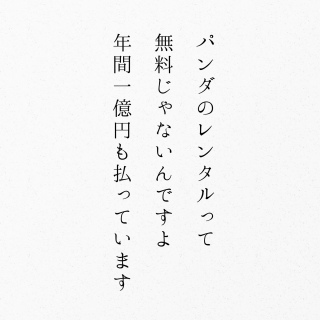 パンダのレンタルって
無料じゃないんですよ
年間一億円も払っています